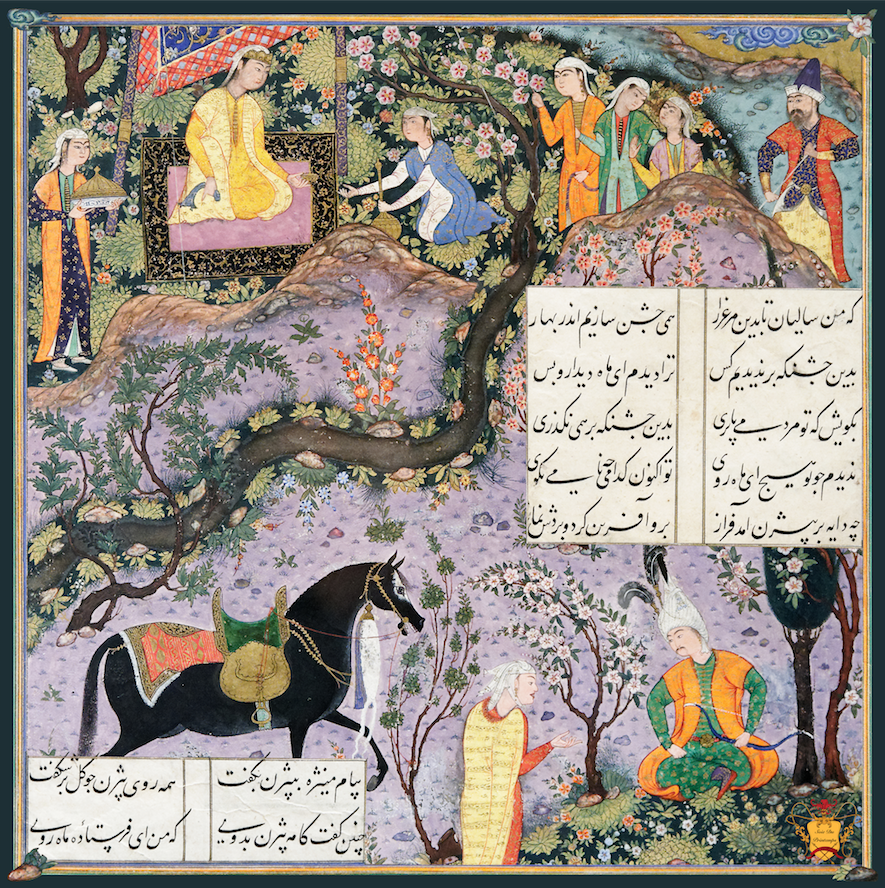 که من سالیان تا بدین مرغزار همی جشن سازیم اندر بهار
بدین جشنکه بر ندیدیم کس ترا دیدم ای ماه دیدار و بس
بکویش که تو مردمی یا پری بدین جشنکه بر همی بکذری
ندیدم چو تو هیچ ای ماه روی تو اکنون کدامی
چو دایه بر بیژن آمد فراز برو آفرین کرد و بردش نماز
پیام منیژه به بیژن بگفت همه روی بیژن چو کل بر شکفت
چنین کفت کامه بیژن بدوی که من ای فرستاده ماه روی